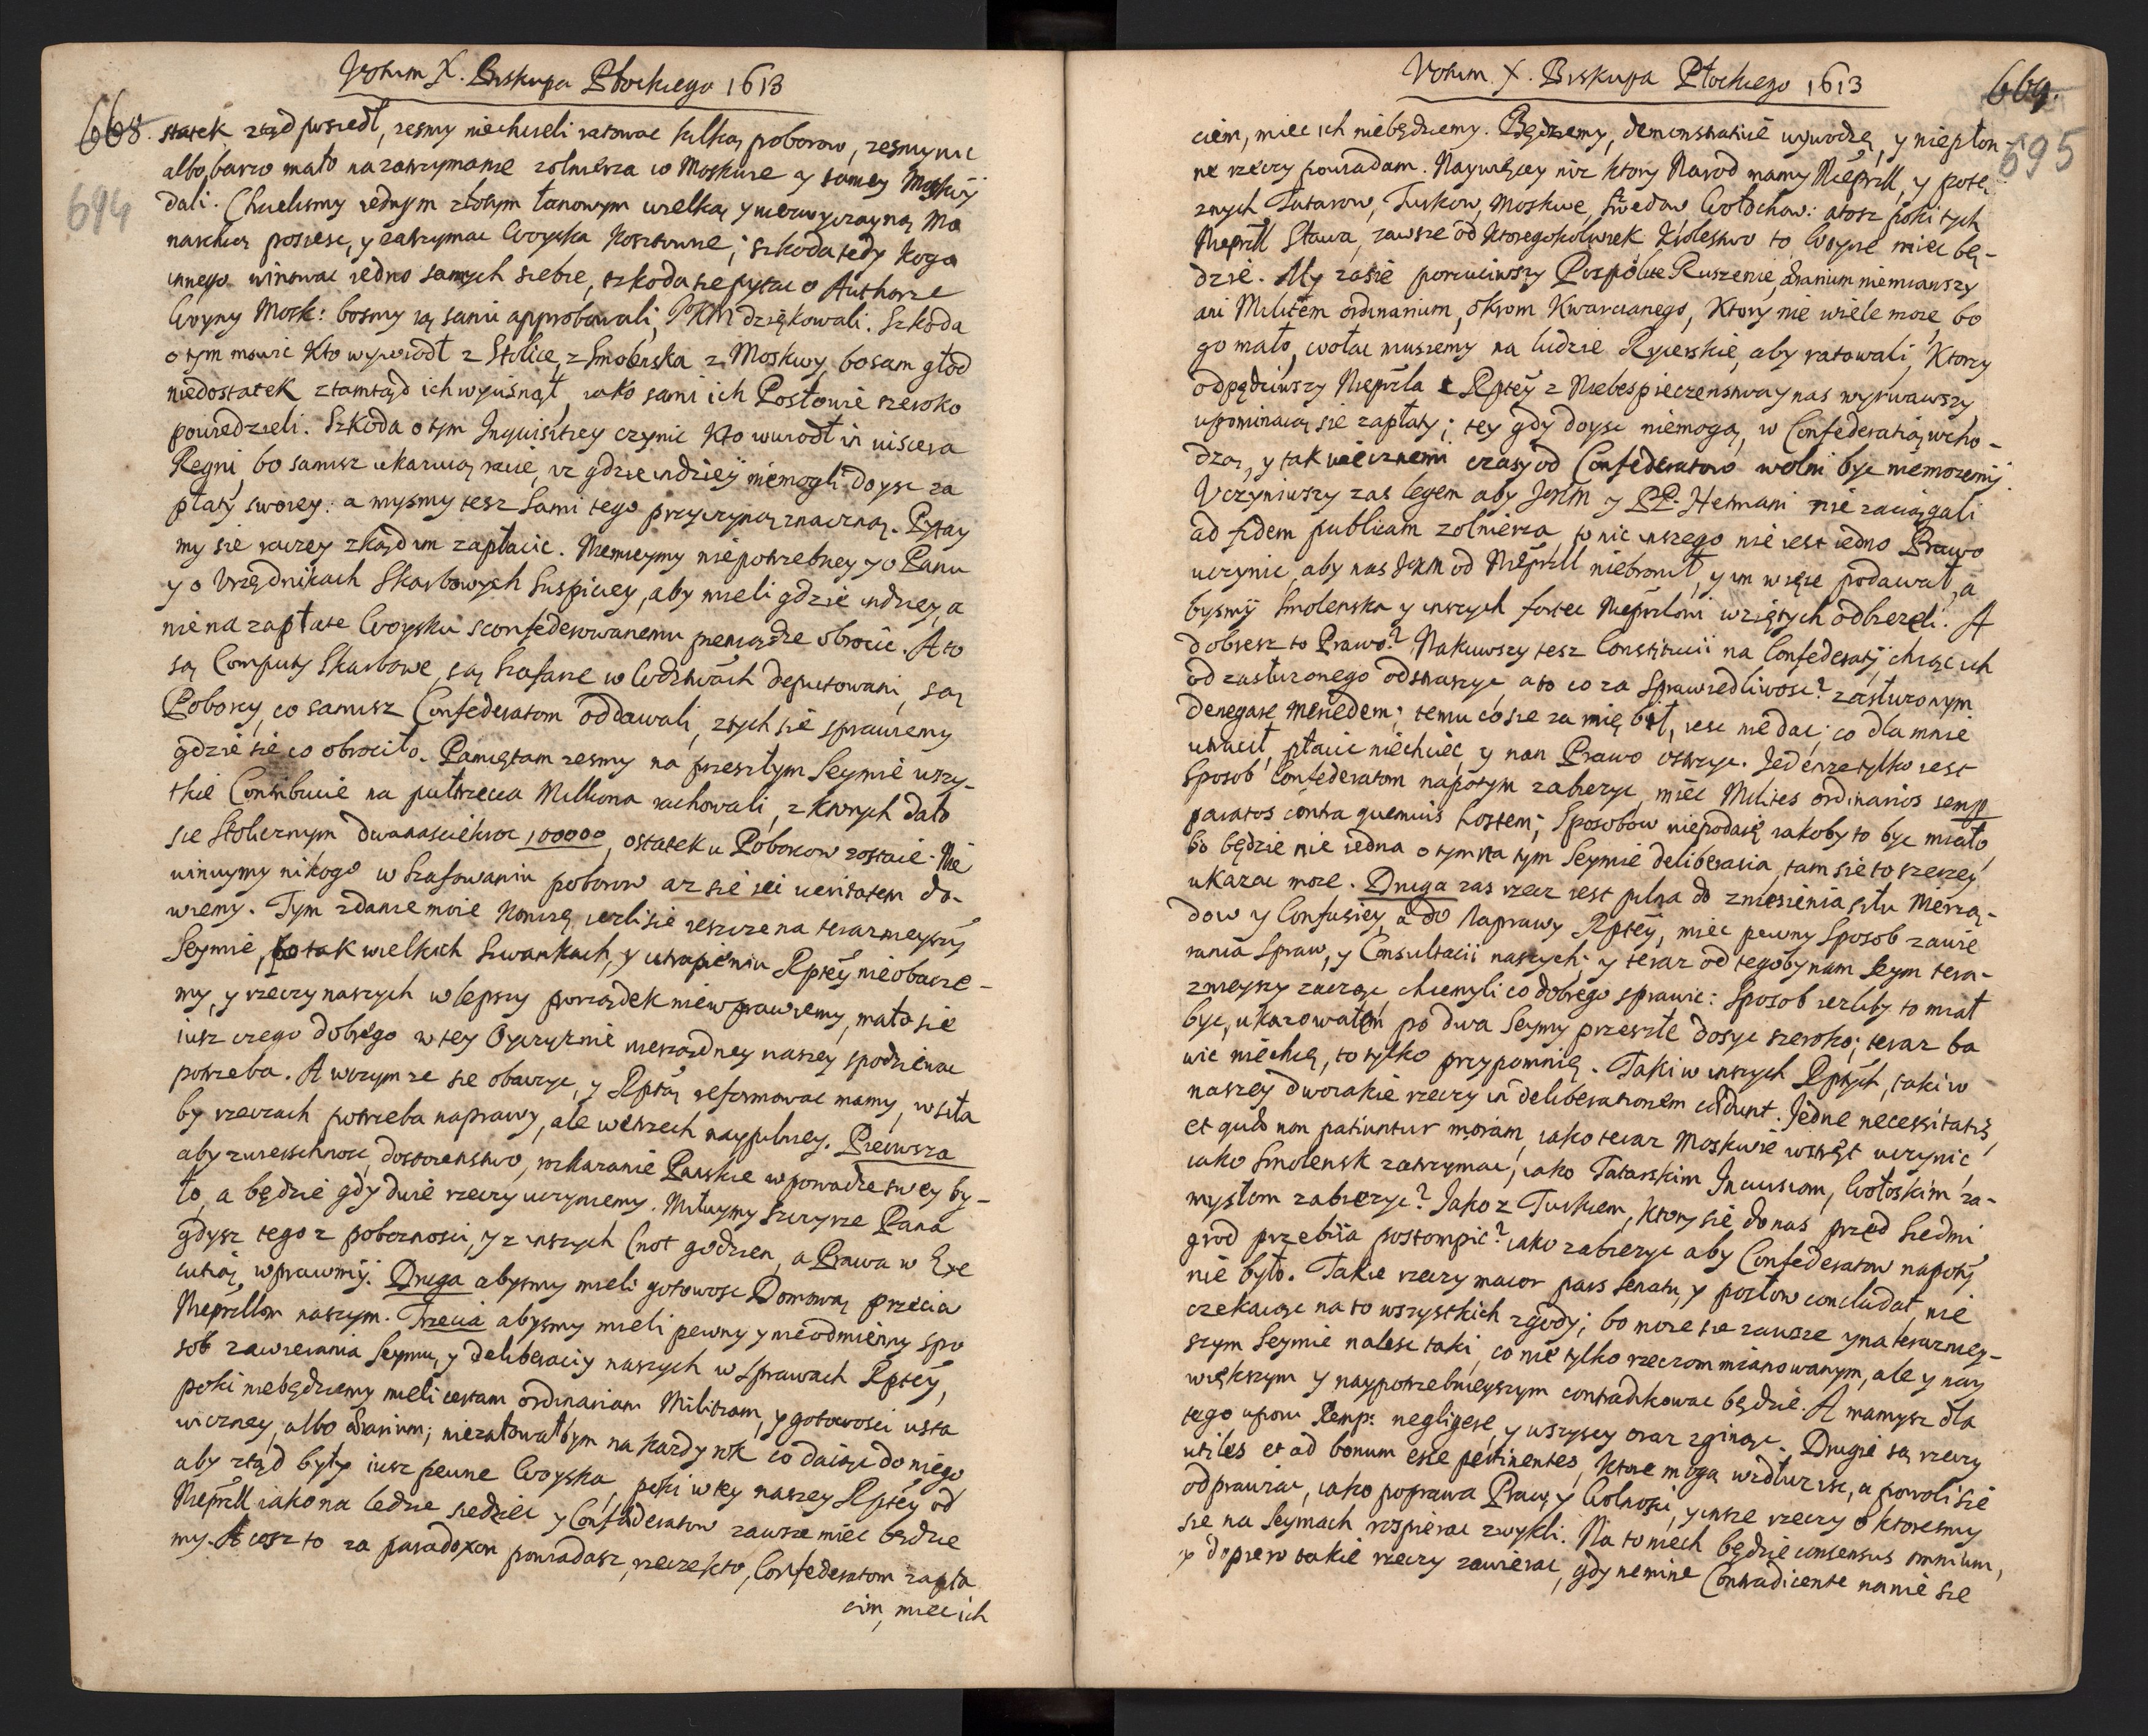 Votum X. Biskupa Płockiego 1613
668.
694
statek ztąd poszedł, zesmy niechcieli ratowac kilką poborow, zesmy nic
albo barzo mało na zatrzymanie zolnierza w Moskwie y samey Moskwy
dali. Chcielismy iednym złotym łanowym wielką y niezwyczayną Mo
narchią posiesc, y zatrzymac Woyska kosztowne; szkoda tedy kogo
innego winowac iedno samych siebie, szkoda sie pytac o Authorze
Woyny Mosk: bosmy ią sami approbowali, JKM dziękowali. Szkoda
o tym mowic kto wywiodł z Stolice, z Smolenska z Moskwy, bo sam głod
niedostatek ztamtąd ich wycisnął, iako sami ich Posłowie szeroko
powiedzieli. Szkoda o tym Inquisitiey czynic kto wwiodł in viscera
Regni, bo samisz ukazuią racie, iz gdzieindziey niemogli doysc za
płaty swoiey: a mysmy tesz sami tego przyczyną znaczną. Pytay
my sie raczey zkąd im zapłacic. Niemieymy niepotrzebney y o Panu
y o Vrzędnikach Skarbowych Suspiciey, aby mieli gdzie indziey, a
nie na zapłate Woysku sconfederowanemu pieniądze obrocic. A to
są Computy Skarbowe, są Szafarze w Wodztwach deputowani, są
Poborcy, co samisz Confederatom oddawali, z tych sie sprawiemy
gdzie sie co obrociło. Pamiętam zesmy na przeszłym Seymie wszy-
tkie Contribucie na pułtrzecia Milliona rachowali, z ktorych dało
sie Stolicznym dwanasciekroc 100000, ostatek u Poborcow zostaie. Nie
winuymy nikogo w Szafowaniu poborow az sie rei veritatem do-
wiemy. Tym zdanie moie konczę, iezli sie ieszcze na terazneyszym
Seymie, po tak wielkich Szwankach, y utrapieniu Rptey nie obacze-
my, y rzeczy naszych w lepszy porządek niewprawiemy, mało sie
iusz czego dobrego w tey Oyczyznie nierządney naszey spodziewac
potrzeba. A w czym ze sie obaczyc, y Rptą reformowac mamy, w siła
by rzeczach potrzeba naprawy, ale w trzech naypilniey. Pierwsza
aby zwierzchnosc, dostoienstwo, rozkazanie Pańskie w powadze swey by-
ło, a będzie gdy dwie rzeczy uczyniemy. Miłuymy szczyrze Pana
gdysz tego z pobożnosci, y z inszych Cnot godzien, a Prawa w Exe
cutią wprawmy. Druga abysmy mieli gotowosc Domową przeciw
Nieprzllom naszym. Trzecia abysmy mieli pewny y nieodmienny spo
sob zawierania Seymu, y deliberaciy naszych w sprawach Rptey,
poki niebędziemy mieli certam ordinariam Militiam, y gotowosci usta
wiczney, albo ærarium; nieżałowałbym na każdy rok co daiąc do niego
aby ztąd były iusz pewne Woyska, poki w tey naszey Rptey od
Nieprzll iako na ledzie siedziec y Confæderatow zawsze miec będzie
my. A cosz to za paradoxon powiadasz, rzecze kto, Confederatom zapła
cim, miec ich
Votum. X. Biskupa Płockiego 1613
669.
695
ciem, miec ich niebędziemy. Będziemy, demonstrative wywodzę, y niepłon-
ne rzeczy powiadam. Naywięcey niż ktory Narod mamy Nieprzll, y potę-
znych Tatarow, Turkow, Moskwe, Szwedow, Wołochow: a tosz poki tych
Nieprzll Stawa, zawsze od ktoregokolwiek Krolestwo to Woynę miec bę-
dzie. My zasie porzuciwszy Pospolite Ruszenie, ærarium niemiawszy
ani Militem ordinarium, okrom Kwarcianego, Ktory nie wiele może bo
go mało, wołac muszemy na ludzie Rycerskie, aby ratowali, Ktorzy
odpędziwszy Nieprzla z Rptey z Niebespieczenstwa y nas wyrwawszy
upominaią sie zapłaty; tey gdy doysc niemogą, w Confederatią wcho-
dzą, y tak wiecznemi czasy od Confederatow wolni byc niemożemy.
Vczyniwszy zas legem aby JKM y PP. Hetmani nie zaciągali
ad fidem publicam zolnierza, to nic inszego nie iest iedno Prawo
uczynic, aby nas JKM od Nieprzll niebronił, y im w ręce podawał, a
bysmy Smolenska y inszych fortec Nieprzlowi wziętych odbiezeli. A
dobresz to Prawo? Nakuwszy tesz Constitucii na Confederaty, chcąc ich
od zasłużonego odstraszyc, a to co za Sprawiedliwosc? zasłużonym
denegare mercedem; temu co sie za mię bił, iesc nie dac; co dla mnie
utracił, płacic niechciec, y nan Prawo ostrzyc. Jeden ze tylko iest
Sposob Confederatom napotym zabiezyc, miec Milites ordinarios semp
paratos contra quemvis hostem; Sposobow niepodaię iakoby to byc miało,
bo będzie nie iedna o tym na tym Seymie deliberacia, tam sie to szerzey
ukazac może. Druga zas rzecz iest pilna do zniesienia siłu Nierzą-
dow y Confusiey, a do Naprawy Rptey, miec pewny Sposob zawie
rania Spraw, y Consultacii naszych; y teraz od tegoby nam Seym tera-
znieyszy zacząc, chcemyli co dobrego sprawic: Sposob iezliby to miał
byc, ukazowałem po dwa Seymy przeszłe dosyc szeroko; teraz ba
wic niechcę, to tylko przypomnię. Taki w inszych Rptych, taki w
naszey dwoiakie rzeczy in deliberationem cadunt. Jedne necessitatis,
et quæ non patiuntur moram, iako teraz Moskwie wstręt uczynic,
iako Smolensk zatrzymac, iako Tatarskim Incursiom, Wołoskim za-
mysłom zabiezyc? Jako z Turkiem, ktory sie do nas przed Siedmi
grod przebiia postompic? iako zabiezyc aby Confederatow napoty
nie było. Takie rzeczy maior pars senatu, y posłow concludat, nie
czekaiąc na to wszystkich zgody; bo może sie zawsze y na terazniey-
szym Seymie nalesc taki, co nie tylko rzeczom mianowanym, ale y nay
większym y naypotrzebnieyszym contradikowac będzie. A mamysz dla
tego uporu Remp: negligere, y wszyscy oraz zginąc. Drugie są rzeczy
utiles et ad bonum esse pertinentes, ktore mogą wzdłuz isc, a powoli sie
odprawiac, iako poprawa Praw, y Wolnosci, y insze rzeczy o ktoresmy
sie na Seymach rospierac zwykli. Na to niech będzie consensus omnium,
y dopiero takie rzeczy zawierac, gdy nemine Contradicente na nie sie